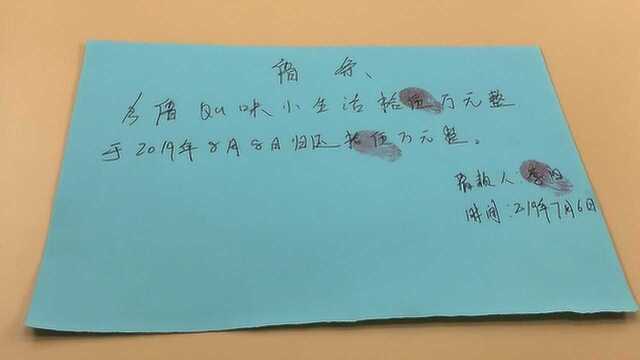 借条、
今借QU味小生活拾伍万元整
于2019年8月8日归还拾伍万元整。
借款人:李
时间:2019年7月6日